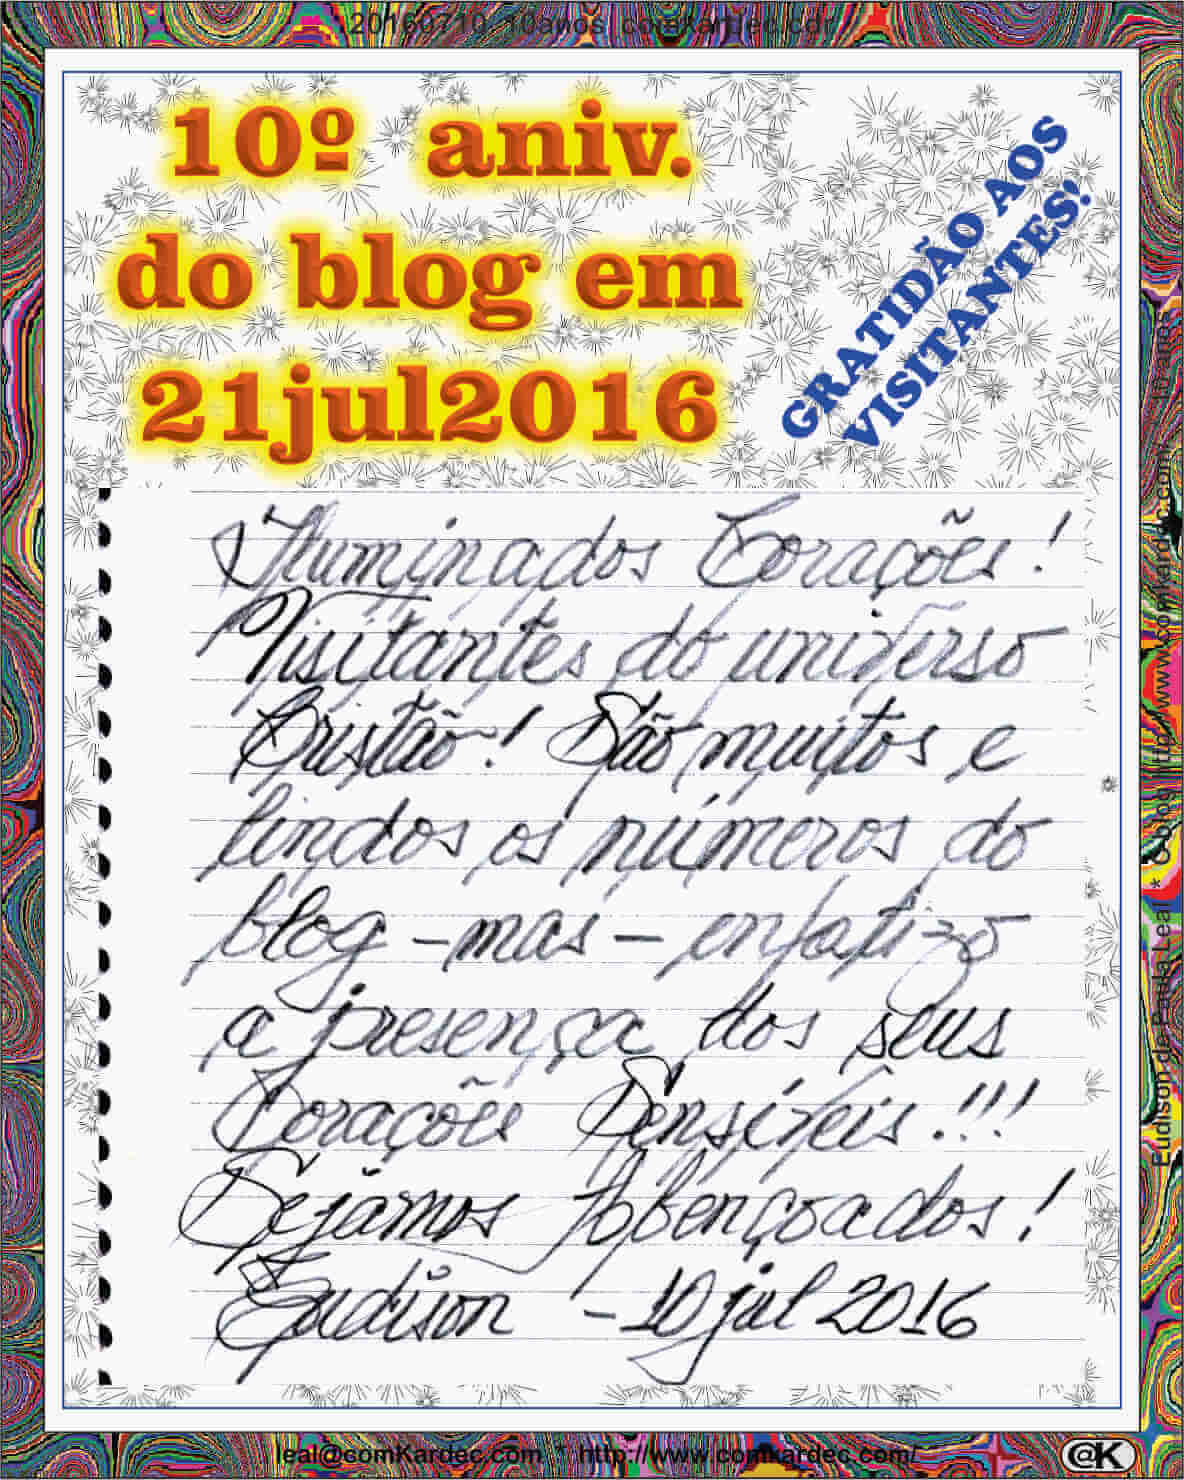 :20160710_10anos_comKardec.cdr
10º aniv.
do blog em
21jul2016
GRATIDÃO AOS
VISITANTES!
Iluminados Corações!
Visitantes do universo
Cristão! São muitos e
lindos os números do
blog - mas - enfatizo
a presença dos seus
Corações Sensíveis!!!
Sejamos Abençoados!
Eudison - 10 jul 2016
Eudison de Paula Leal * O blog http://www.comKardec.com
leal@comKardec.com * http://www.comkardec.com/
@K